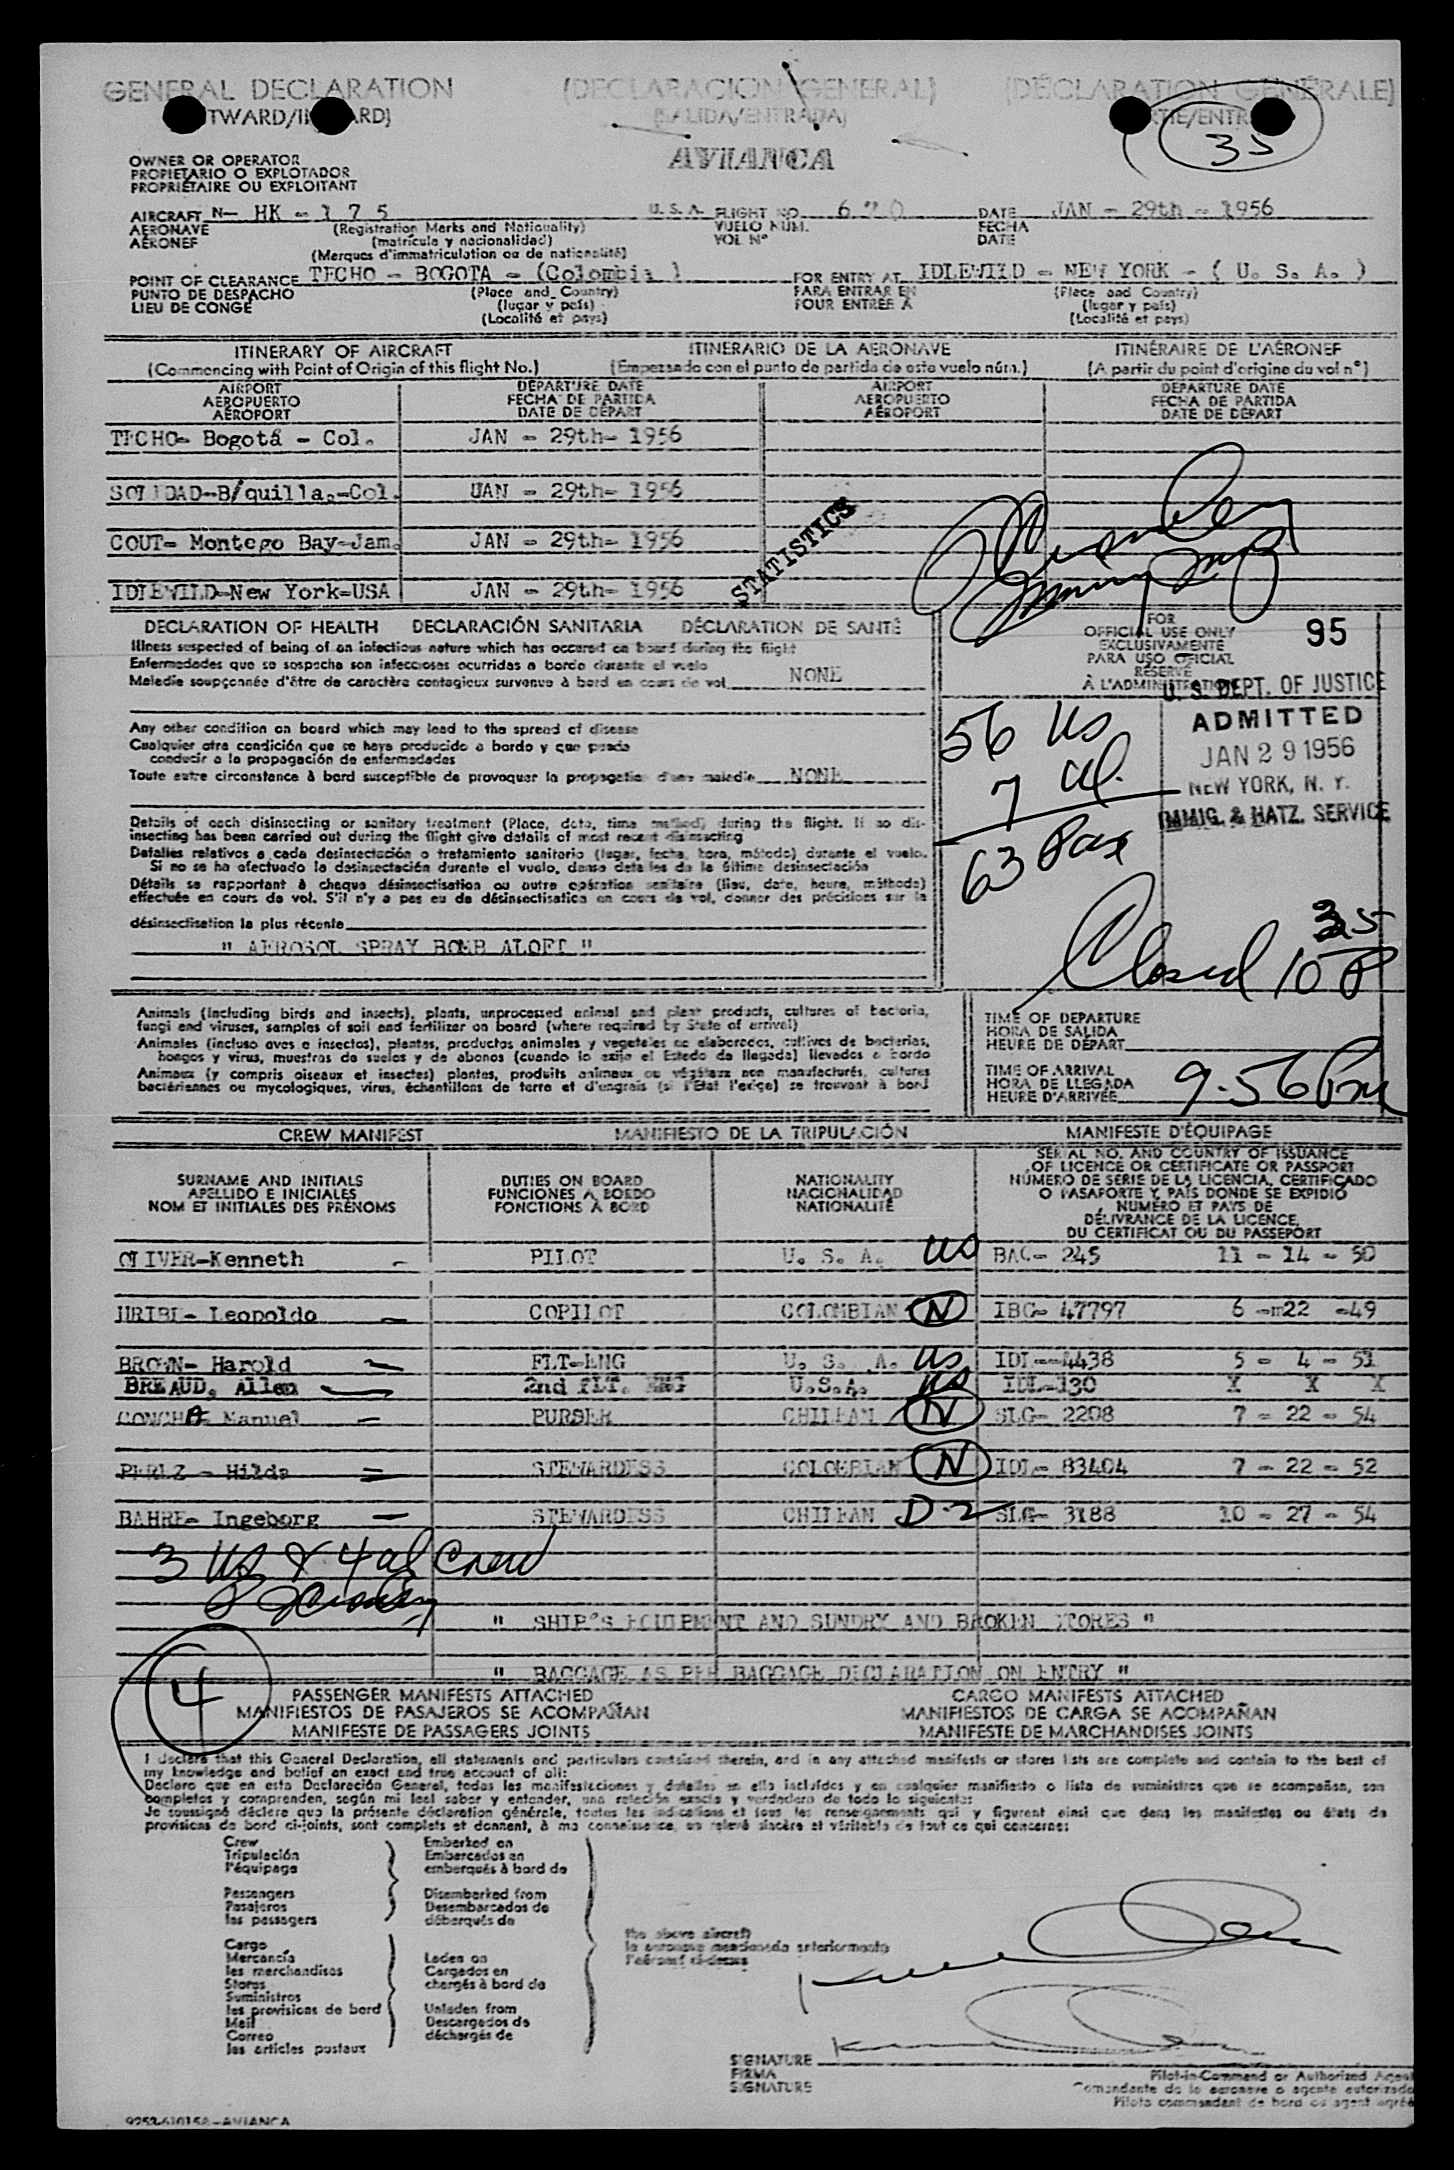 GENERAL DECLARATION (DECLARACION GENERAL) (DÉCLARATION GÉNÉRALE)
(SALIDA/ENTRADA)
35
AVIANCA
OWNER OR OPERATOR
PROPIETARIO O EXPLOTADOR
PROPRIÉTAIRE OU EXPLOITANT
AIRCRAFT N- HK - 1 7 5 U.S.A. FLIGHT NO. 670 DATE JAN - 29th - 1956
AERONAVE (Registration Marks and Nationality) VUELO NUM. FECHA
AÉRONEF (matrícula y nacionalidad) VOL N° DATE
(Marques d'immatriculation ou de nationalité)
POINT OF CLEARANCE TECHO - BOGOTA - (Colombia ) FOR ENTRY AT IDLEWILD - NEW YORK - ( U. S. A. )
PUNTO DE DESPACHO (Place and Country) PARA ENTRAR EN (Place and Country)
LIEU DE CONGÉ (lugar y país) POUR ENTRÉE A (lugar y país)
(Localité et pays) (Localité et pays)
ITINERARY OF AIRCRAFT ITINERARIO DE LA AERONAVE ITINÉRAIRE DE L'AÉRONEF
(Commencing with Point of Origin of this flight No.) (Empezando con el punto de partida de este vuelo núm.) (A partir du point d'origine du vol n°)
AIRPORT DEPARTURE DATE AIRPORT DEPARTURE DATE
AEROPUERTO FECHA DE PARTIDA AEROPUERTO FECHA DE PARTIDA
AÉROPORT DATE DE DÉPART AÉROPORT DATE DE DÉPART
TECHO- Bogotá - Col. JAN - 29th- 1956
SOLEDAD-B/quilla,-Col. UAN - 29th- 1956
COUT- Montego Bay-Jam. JAN - 29th- 1956
IDLEWILD-New York-USA JAN - 29th- 1956
STATISTICS
DECLARATION OF HEALTH DECLARACIÓN SANITARIA DÉCLARATION DE SANTÉ
Illness suspected of being of an infectious nature which has occured on board during the flight
Enfermedades que se sospecha son infecciosas ocurridas a bordo durante el vuelo
Maladie soupçonnée d'être de caractère contagieux survenue à bord en cours de vol NONE
Any other condition on board which may lead to the spread of disease
Cualquier otra condición que se haya producido a bordo y que pueda
conducir a la propagación de enfermedades
Toute autre circonstance à bord susceptible de provoquer la propagation d'une maladie NONE
Details of each disinsecting or sanitary treatment (Place, date, time method) during the flight. If no dis-
insecting has been carried out during the flight give details of most recent disinsecting
Detalles relativos a cada desinsectación o tratamiento sanitario (lugar, fecha, hora, método) durante el vuelo.
Si no se ha efectuado la desinsectación durante el vuelo, dense detalles de la última desinsectación
Détails se rapportant à chaque désinsectisation ou autre opération sanitaire (lieu, date, heure, méthode)
effectuée en cours de vol. S'il n'y a pas eu de désinsectisation en cours de vol, donner des précisions sur la
désinsectisation la plus récente
" AEROSOL SPRAY BOMB ALOFT "
FOR
OFFICIAL USE ONLY
EXCLUSIVAMENTE
PARA USO OFICIAL
RÉSERVÉ
À L'ADMINISTRATION
95
U. S. DEPT. OF JUSTICE
ADMITTED
JAN 29 1956
NEW YORK, N. Y.
IMMIG. & NATZ. SERVICE
56 US
7 al.
63 Pax
Closed 10 35 P
Animals (including birds and insects), plants, unprocessed animal and plant products, cultures of bacteria,
fungi and viruses, samples of soil and fertilizer on board (where required by State of arrival)
Animales (incluso aves e insectos), plantas, productos animales y vegetales no elaborados, cultivos de bacterias,
hongos y virus, muestras de suelos y de abonos (cuando lo exija el Estado de llegada) llevados a bordo
Animaux (y compris oiseaux et insectes) plantes, produits animaux ou végétaux non manufacturés, cultures
bactériennes ou mycologiques, virus, échantillons de terre et d'engrais (si l'État l'exige) se trouvant à bord
TIME OF DEPARTURE
HORA DE SALIDA
HEURE DE DÉPART
TIME OF ARRIVAL
HORA DE LLEGADA
HEURE D'ARRIVÉE 9.56 Pm
CREW MANIFEST MANIFIESTO DE LA TRIPULACIÓN MANIFESTE D'ÉQUIPAGE
SURNAME AND INITIALS DUTIES ON BOARD NATIONALITY
APELLIDO E INICIALES FUNCIONES A BORDO NACIONALIDAD
NOM ET INITIALES DES PRÉNOMS FONCTIONS À BORD NATIONALITÉ
SERIAL NO. AND COUNTRY OF ISSUANCE
OF LICENCE OR CERTIFICATE OR PASSPORT
NÚMERO DE SERIE DE LA LICENCIA, CERTIFICADO
O PASAPORTE Y PAÍS DONDE SE EXPIDIÓ
NUMÉRO ET PAYS DE
DÉLIVRANCE DE LA LICENCE,
DU CERTIFICAT OU DU PASSEPORT
OLIVER-Kenneth PILOT U. S. A. US BAC- 245 11 - 14 - 50
URIBE- Leopoldo COPILOT COLOMBIAN N IBG- 47797 6 -m22 -49
BROWN- Harold FLT-ENG U. S. A. US IDI--4438 5 - 4 - 51
BREAUD, Allen 2nd FLT. ENG U.S.A. US IDL-130 X X X
CONCHA Manuel PURSER CHILEAN N SLG- 2208 7 - 22 - 54
PEREZ - Hilda STEWARDESS COLOMBIAN N IDI- 83404 7 - 22 - 52
BAHRE- Ingeborg STEWARDESS CHILEAN D-2 SLG- 3188 10 - 27 - 54
3 US & 4 al Crew
" SHIP'S EQUIPMENT AND SUNDRY AND BROKEN STORES "
" BAGGAGE AS PER BAGGAGE DECLARATION ON ENTRY "
4
PASSENGER MANIFESTS ATTACHED CARGO MANIFESTS ATTACHED
MANIFIESTOS DE PASAJEROS SE ACOMPAÑAN MANIFIESTOS DE CARGA SE ACOMPAÑAN
MANIFESTE DE PASSAGERS JOINTS MANIFESTE DE MARCHANDISES JOINTS
I declare that this General Declaration, all statements and particulars contained therein, and in any attached manifests or stores lists are complete and contain to the best of
my knowledge and belief an exact and true account of all:
Declaro que en esta Declaración General, todas las manifestaciones y detalles en ella incluídos y en cualquier manifiesto o lista de suministros que se acompañan, son
completos y comprenden, según mi leal saber y entender, una relación exacta y verdadera de todo lo siguiente:
Je soussigné déclare que la présente déclaration générale, toutes les indications et tous les renseignements qui y figurent ainsi que dans les manifestes ou états de
provisions de bord ci-joints, sont complets et donnent, à ma connaissance, un relevé sincère et véritable de tout ce qui concerne:
Crew Embarked on
Tripulación Embarcados en
l'équipage embarqués à bord de
Passengers Disembarked from
Pasajeros Desembarcados de
les passagers débarqués de
the above aircraft
la aeronave mencionada anteriormente
l'aéronef ci-dessus
Cargo
Mercancía Laden on
les marchandises Cargados en
Stores chargés à bord de
Suministros
les provisions de bord Unladen from
Mail Descargados de
Correo déchargés de
les articles postaux
SIGNATURE
FIRMA
SIGNATURE
Pilot-in-Command or Authorized Agent
Comandante de la aeronave o agente autorizado
Pilote commandant de bord ou agent agréé
9253-61015A-AVIANCA